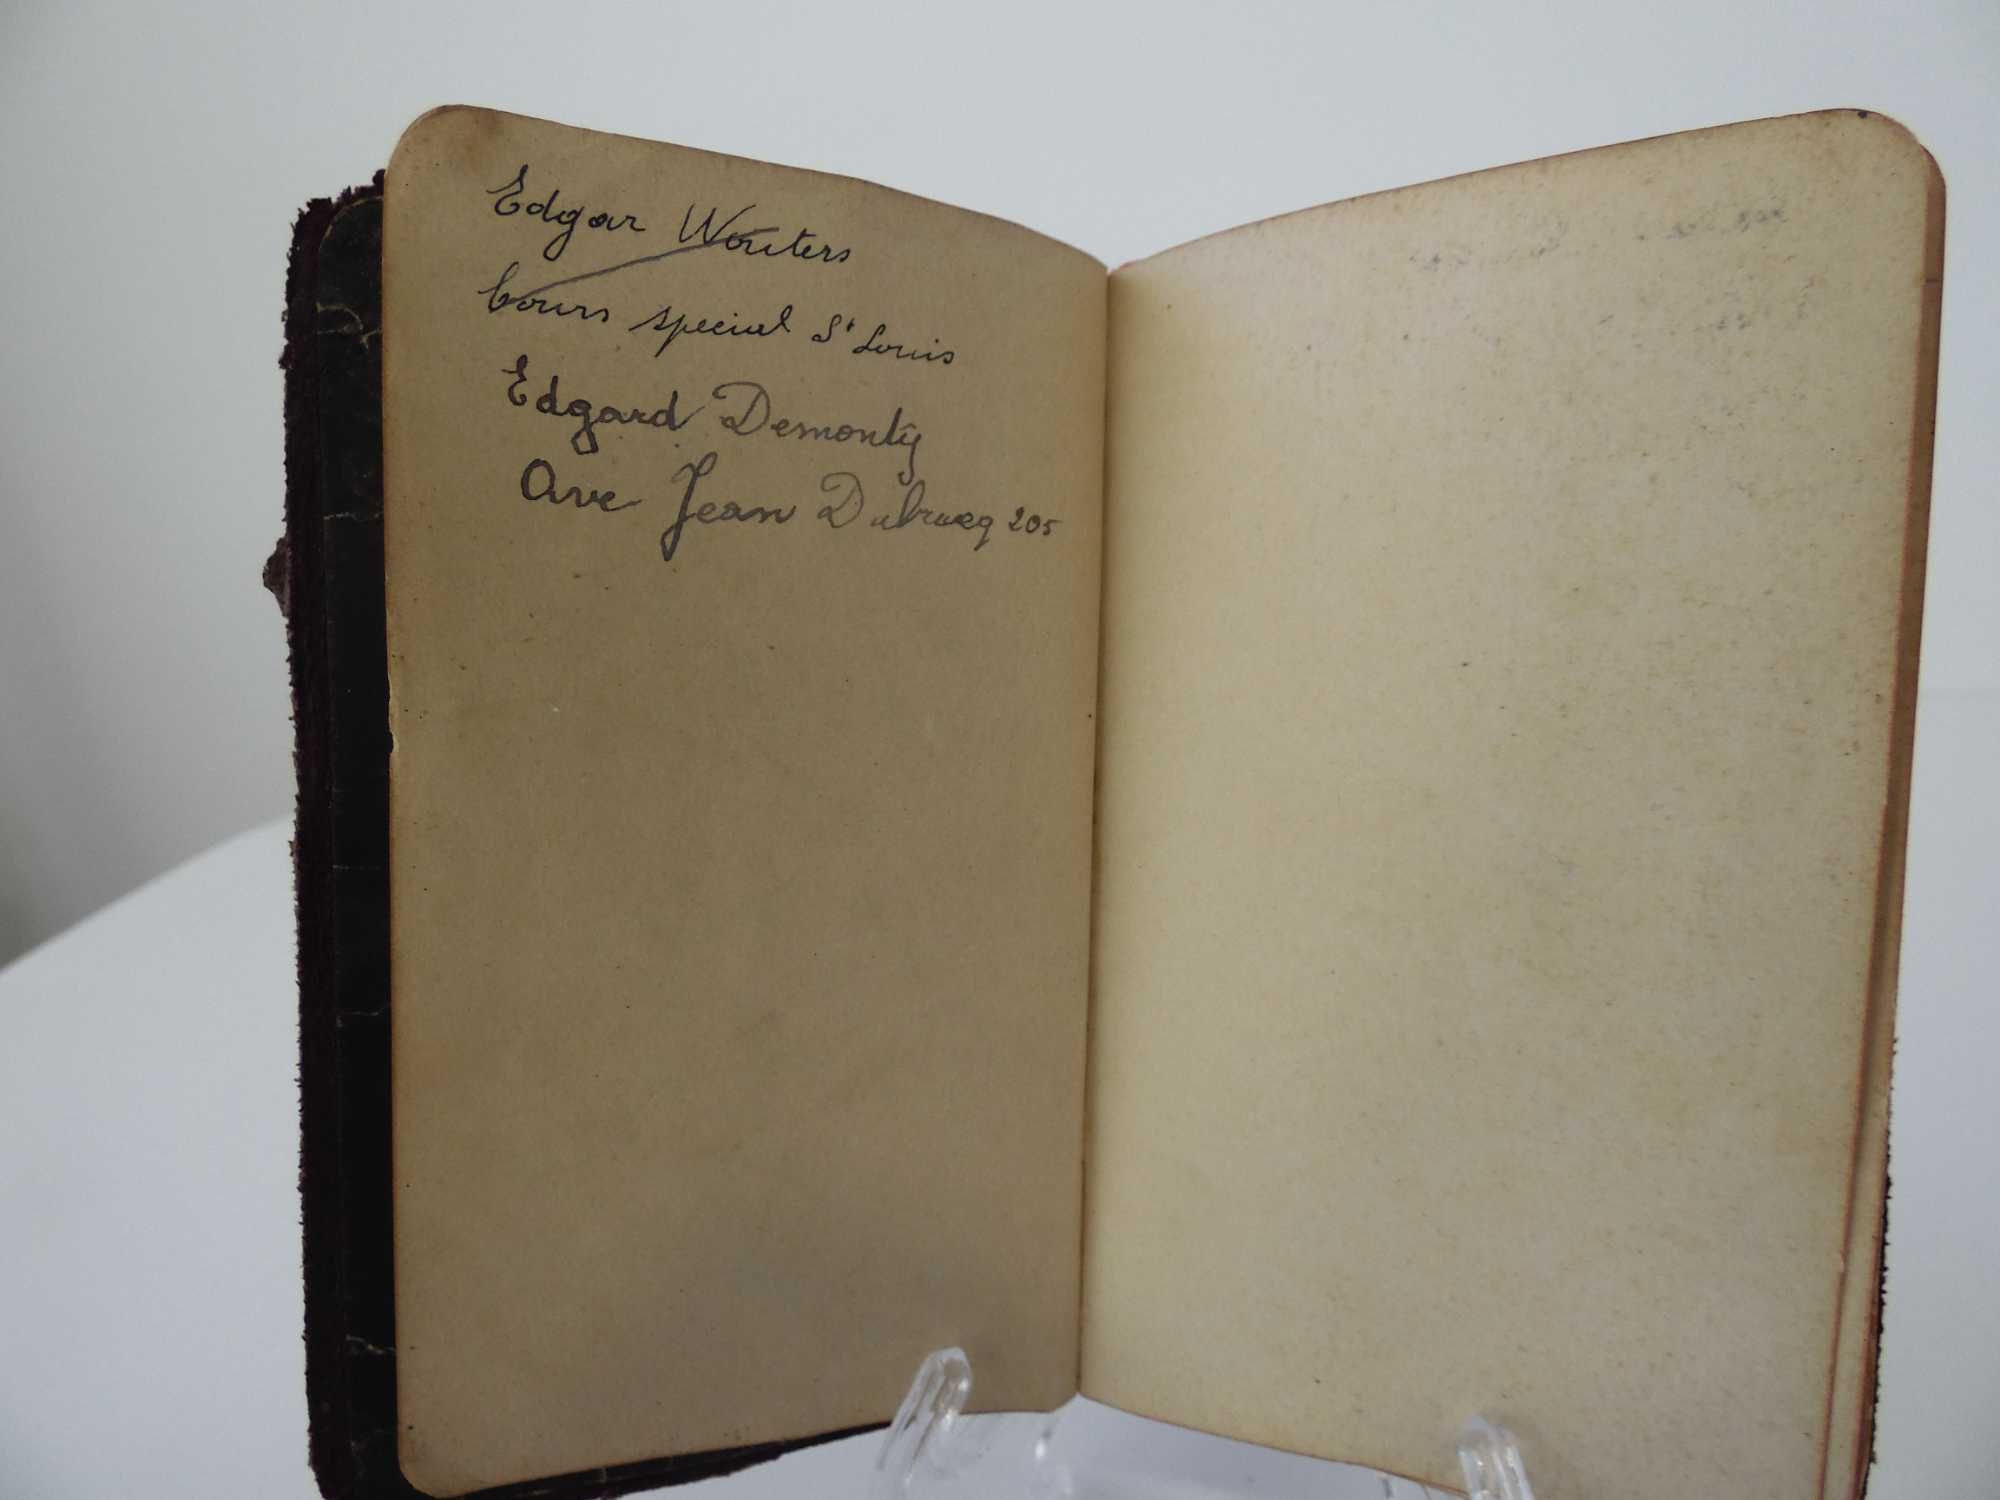 Edgar Wouters
Cours special St Louis
Edgard Demonty
Ave Jean Dubrucq 205